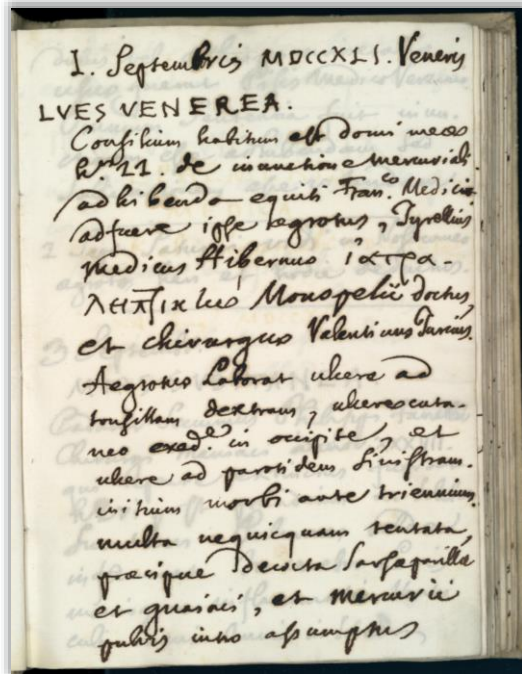 I. Septembris MDCCXLI. Veneris
LVES VENEREA.
Consilium habitum est domi meae
h. 11. de inunctione mercuriali
adhibenda equiti Fran.co Medicio
adfuere ipse aegrotus, Tyrellius
medicus Hibernus
Monspelii doctus,
et chirurgus Valentinus
Aegrotus laborat ulcere ad
tonsillam dextram, ulcere cuta-
neo exed.e in occipite, et
ulcere ad parotidem sinistram.
initium morbi ante triennium.
multa nequicquam tentata,
praecipue decocta Sarsaparillae
et guaiaci, et mercurii
pulvis intro assumptus